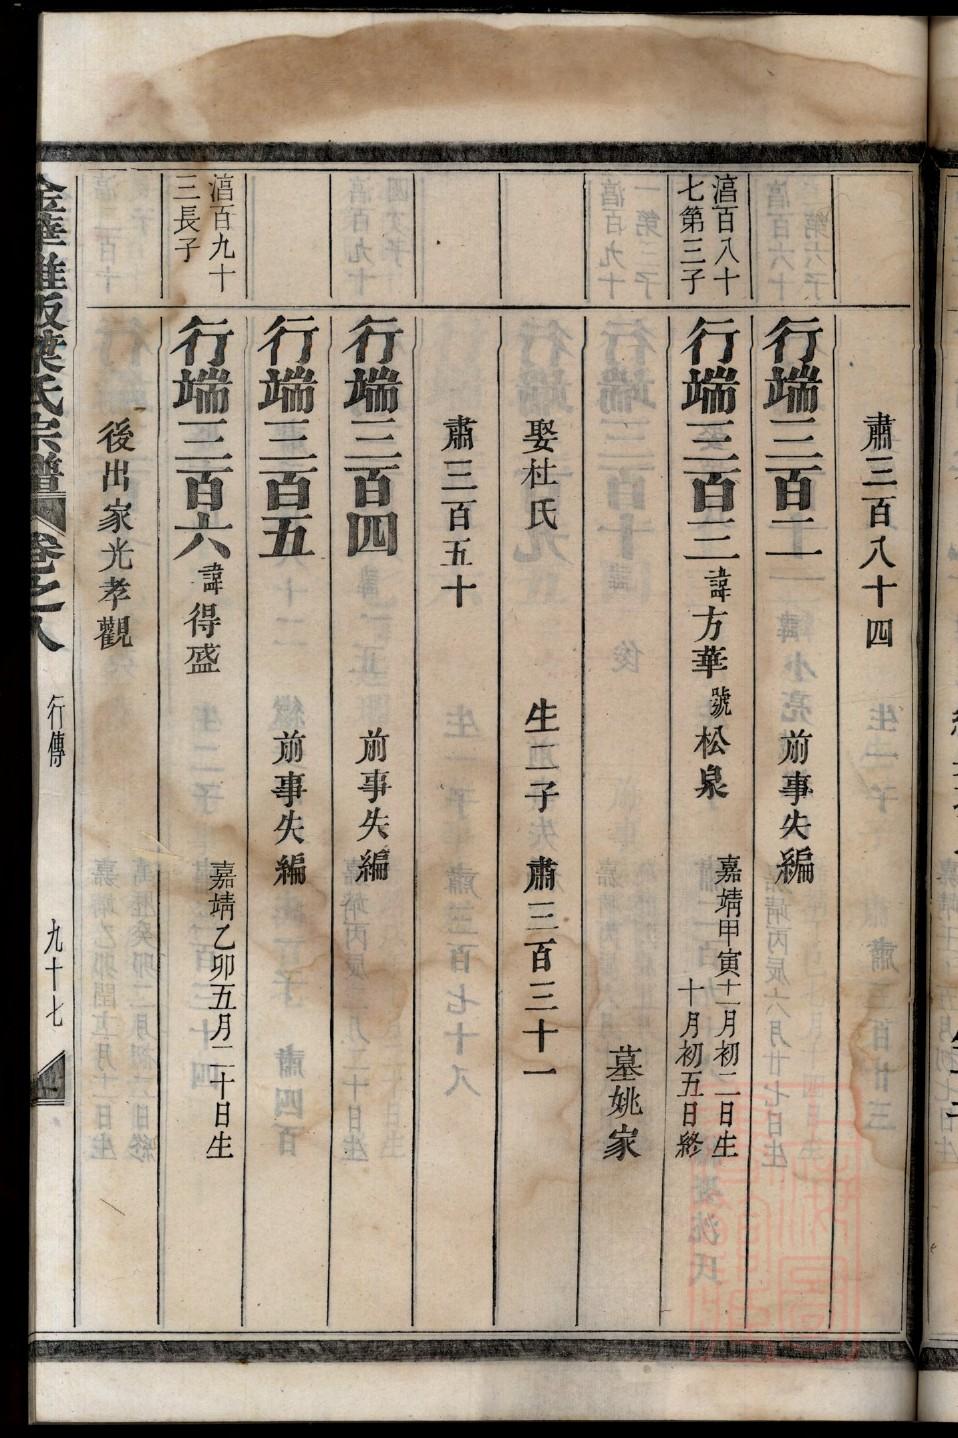 肅三百八十四
行端三百二 前事失編
湻百八十七第三子
行端三百三 諱方華 號松泉 嘉靖甲寅十一月初二日生 十月初五日終
墓姚家
娶杜氏 生二子 肅三百三十一
肅三百五十
行端三百四 前事失編
行端三百五 前事失編
湻百九十三長子
行端三百六 諱得盛 嘉靖乙卯五月二十日生
後出家光孝觀
葉氏宗譜 卷之八 行傳 九十七